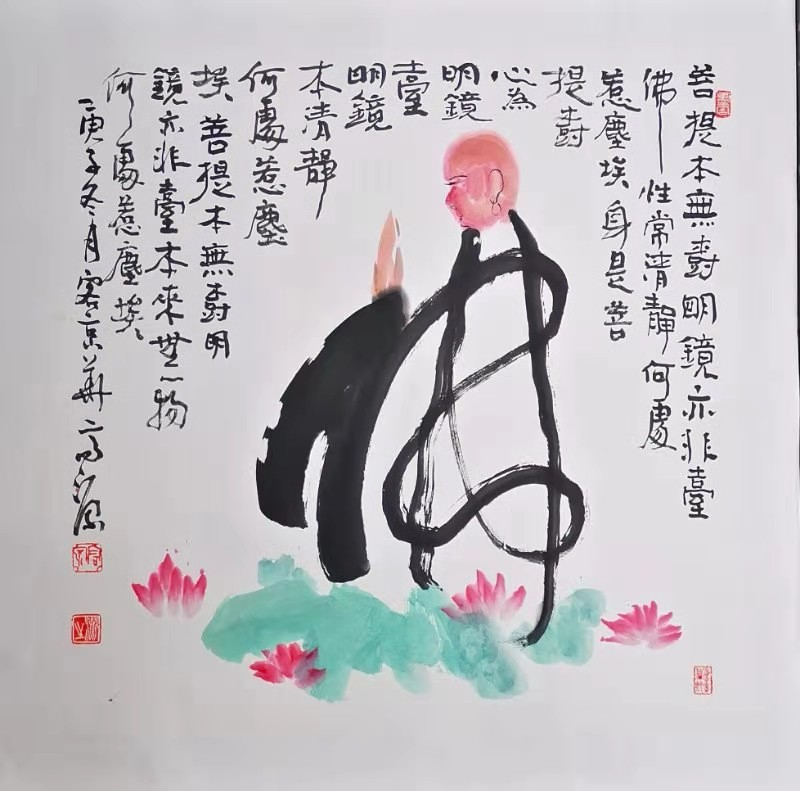 菩提本無樹明鏡亦非臺
佛性常清靜何處
惹塵埃身是菩
提樹
心為
明鏡
臺
明鏡
本清靜
何處惹塵
埃菩提本無樹明
鏡亦非臺本來無一物
何處惹塵埃
庚子冬月客京華高源
佛